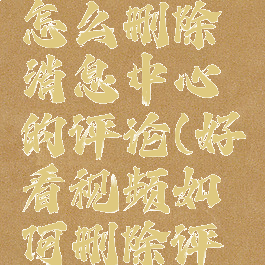 怎么删除
消息中心
的评论(好
看视频如
何删除评